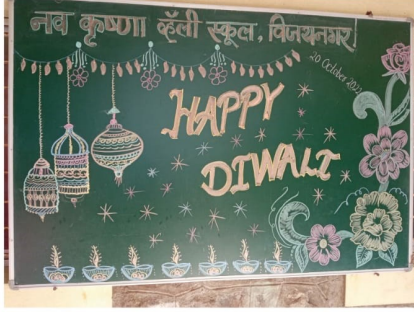 नव कृष्णा व्हॅली स्कूल, विजयनगर
20 October 2022
HAPPY
DIWALI